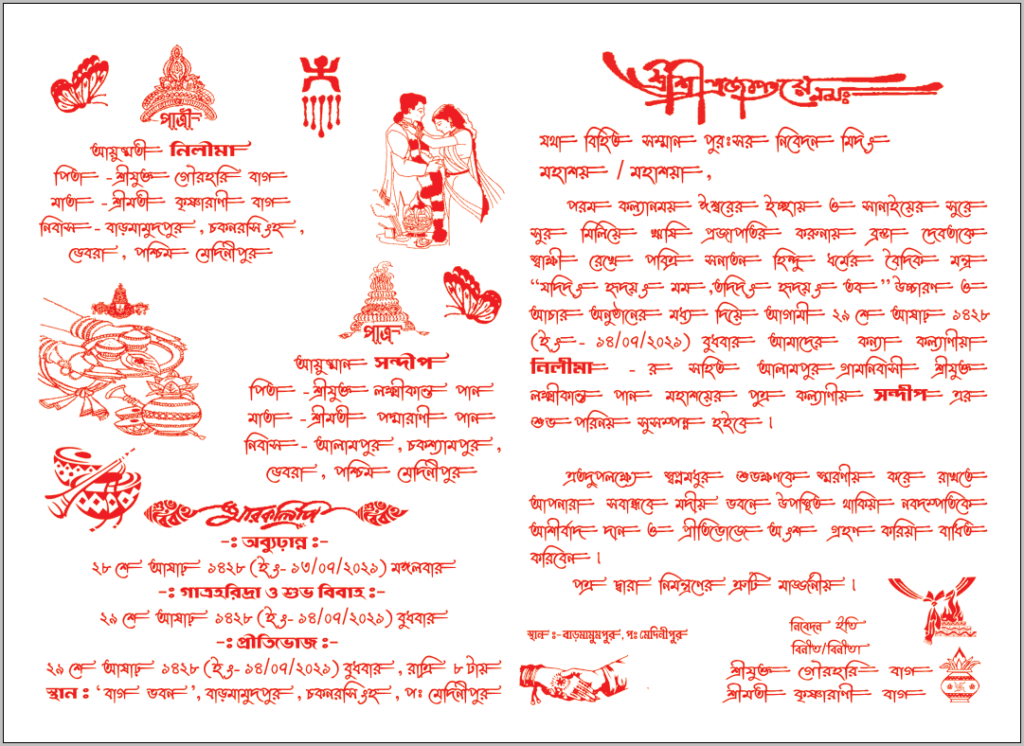 পাত্রী
আয়ুষ্মতী নিলীমা
পিতা - শ্রীযুক্ত গৌরহরি বাগ
মাতা - শ্রীমতী কৃষ্ণারাণী বাগ
নিবাস - বাড়মামুদপুর , চকনরসিংহ ,
ডেবরা , পশ্চিম মেদিনীপুর
পাত্র
আয়ুষ্মান সন্দীপ
পিতা - শ্রীযুক্ত লক্ষ্মীকান্ত পান
মাতা - শ্রীমতী পদ্মারাণী পান
নিবাস - আলামপুর , চকশ্যামপুর ,
ডেবরা , পশ্চিম মেদিনীপুর
স্মারকলিপি
-ঃ অব্যুঢ়ান্ন ঃ-
২৮ শে আষাঢ় ১৪২৮ (ইং- ১৩/০৭/২০২১) মঙ্গলবার
-ঃ গাত্রহরিদ্রা ও শুভ বিবাহ ঃ-
২৯ শে আষাঢ় ১৪২৮ (ইং- ১৪/০৭/২০২১) বুধবার
-ঃ প্রীতিভোজ ঃ-
২৯ শে আষাঢ় ১৪২৮ (ইং- ১৪/০৭/২০২১) বুধবার , রাত্রি ৮ টায়
স্থান ঃ ‘ বাগ ভবন ’, বাড়মামুদপুর , চকনরসিংহ , পঃ মেদিনীপুর
শ্রীশ্রী প্রজাপতয়ে নমঃ
যথা বিহিত সম্মান পুরঃসর নিবেদন মিদং
মহাশয় / মহাশয়া ,
পরম কল্যানময় ঈশ্বরের ইচ্ছায় ও সানাইয়ের সুরে
সুর মিলিয়ে ঋষি প্রজাপতির করুনায় ব্রহ্মা দেবতাকে
স্বাক্ষী রেখে পবিত্র সনাতন হিন্দু ধর্মের বৈদিক মন্ত্র
“যদিদং হৃদয়ং মম ,তদিদং হৃদয়ং তব ” উচ্চারণ ও
আচার অনুষ্ঠানের মধ্য দিয়ে আগামী ২৯ শে আষাঢ় ১৪২৮
(ইং - ১৪/০৭/২০২১) বুধবার আমাদের কন্যা কল্যাণীয়া
নিলীমা - র সহিত আলামপুর গ্রামনিবাসী শ্রীযুক্ত
লক্ষ্মীকান্ত পান মহাশয়ের পুত্র কল্যাণীয় সন্দীপ এর
শুভ পরিনয় সুসম্পন্ন হইবে ।
এতদুপলক্ষ্যে স্বপ্নমধুর শুভক্ষণকে স্মরণীয় করে রাখতে
আপনারা সবান্ধবে মদীয় ভবনে উপস্থিত থাকিয়া নবদম্পতিকে
আশীর্বাদ দান ও প্রীতিভোজে অংশ গ্রহণ করিয়া বাধিত
করিবেন ।
পত্র দ্বারা নিমন্ত্রণের ত্রুটি মার্জ্জনীয় ।
স্থান ঃ- বাড়মামুমপুর, পঃ মেদিনীপুর
নিবেদন ইতি
বিনীত/বিনীতা
শ্রীযুক্ত গৌরহরি বাগ
শ্রীমতী কৃষ্ণারাণী বাগ